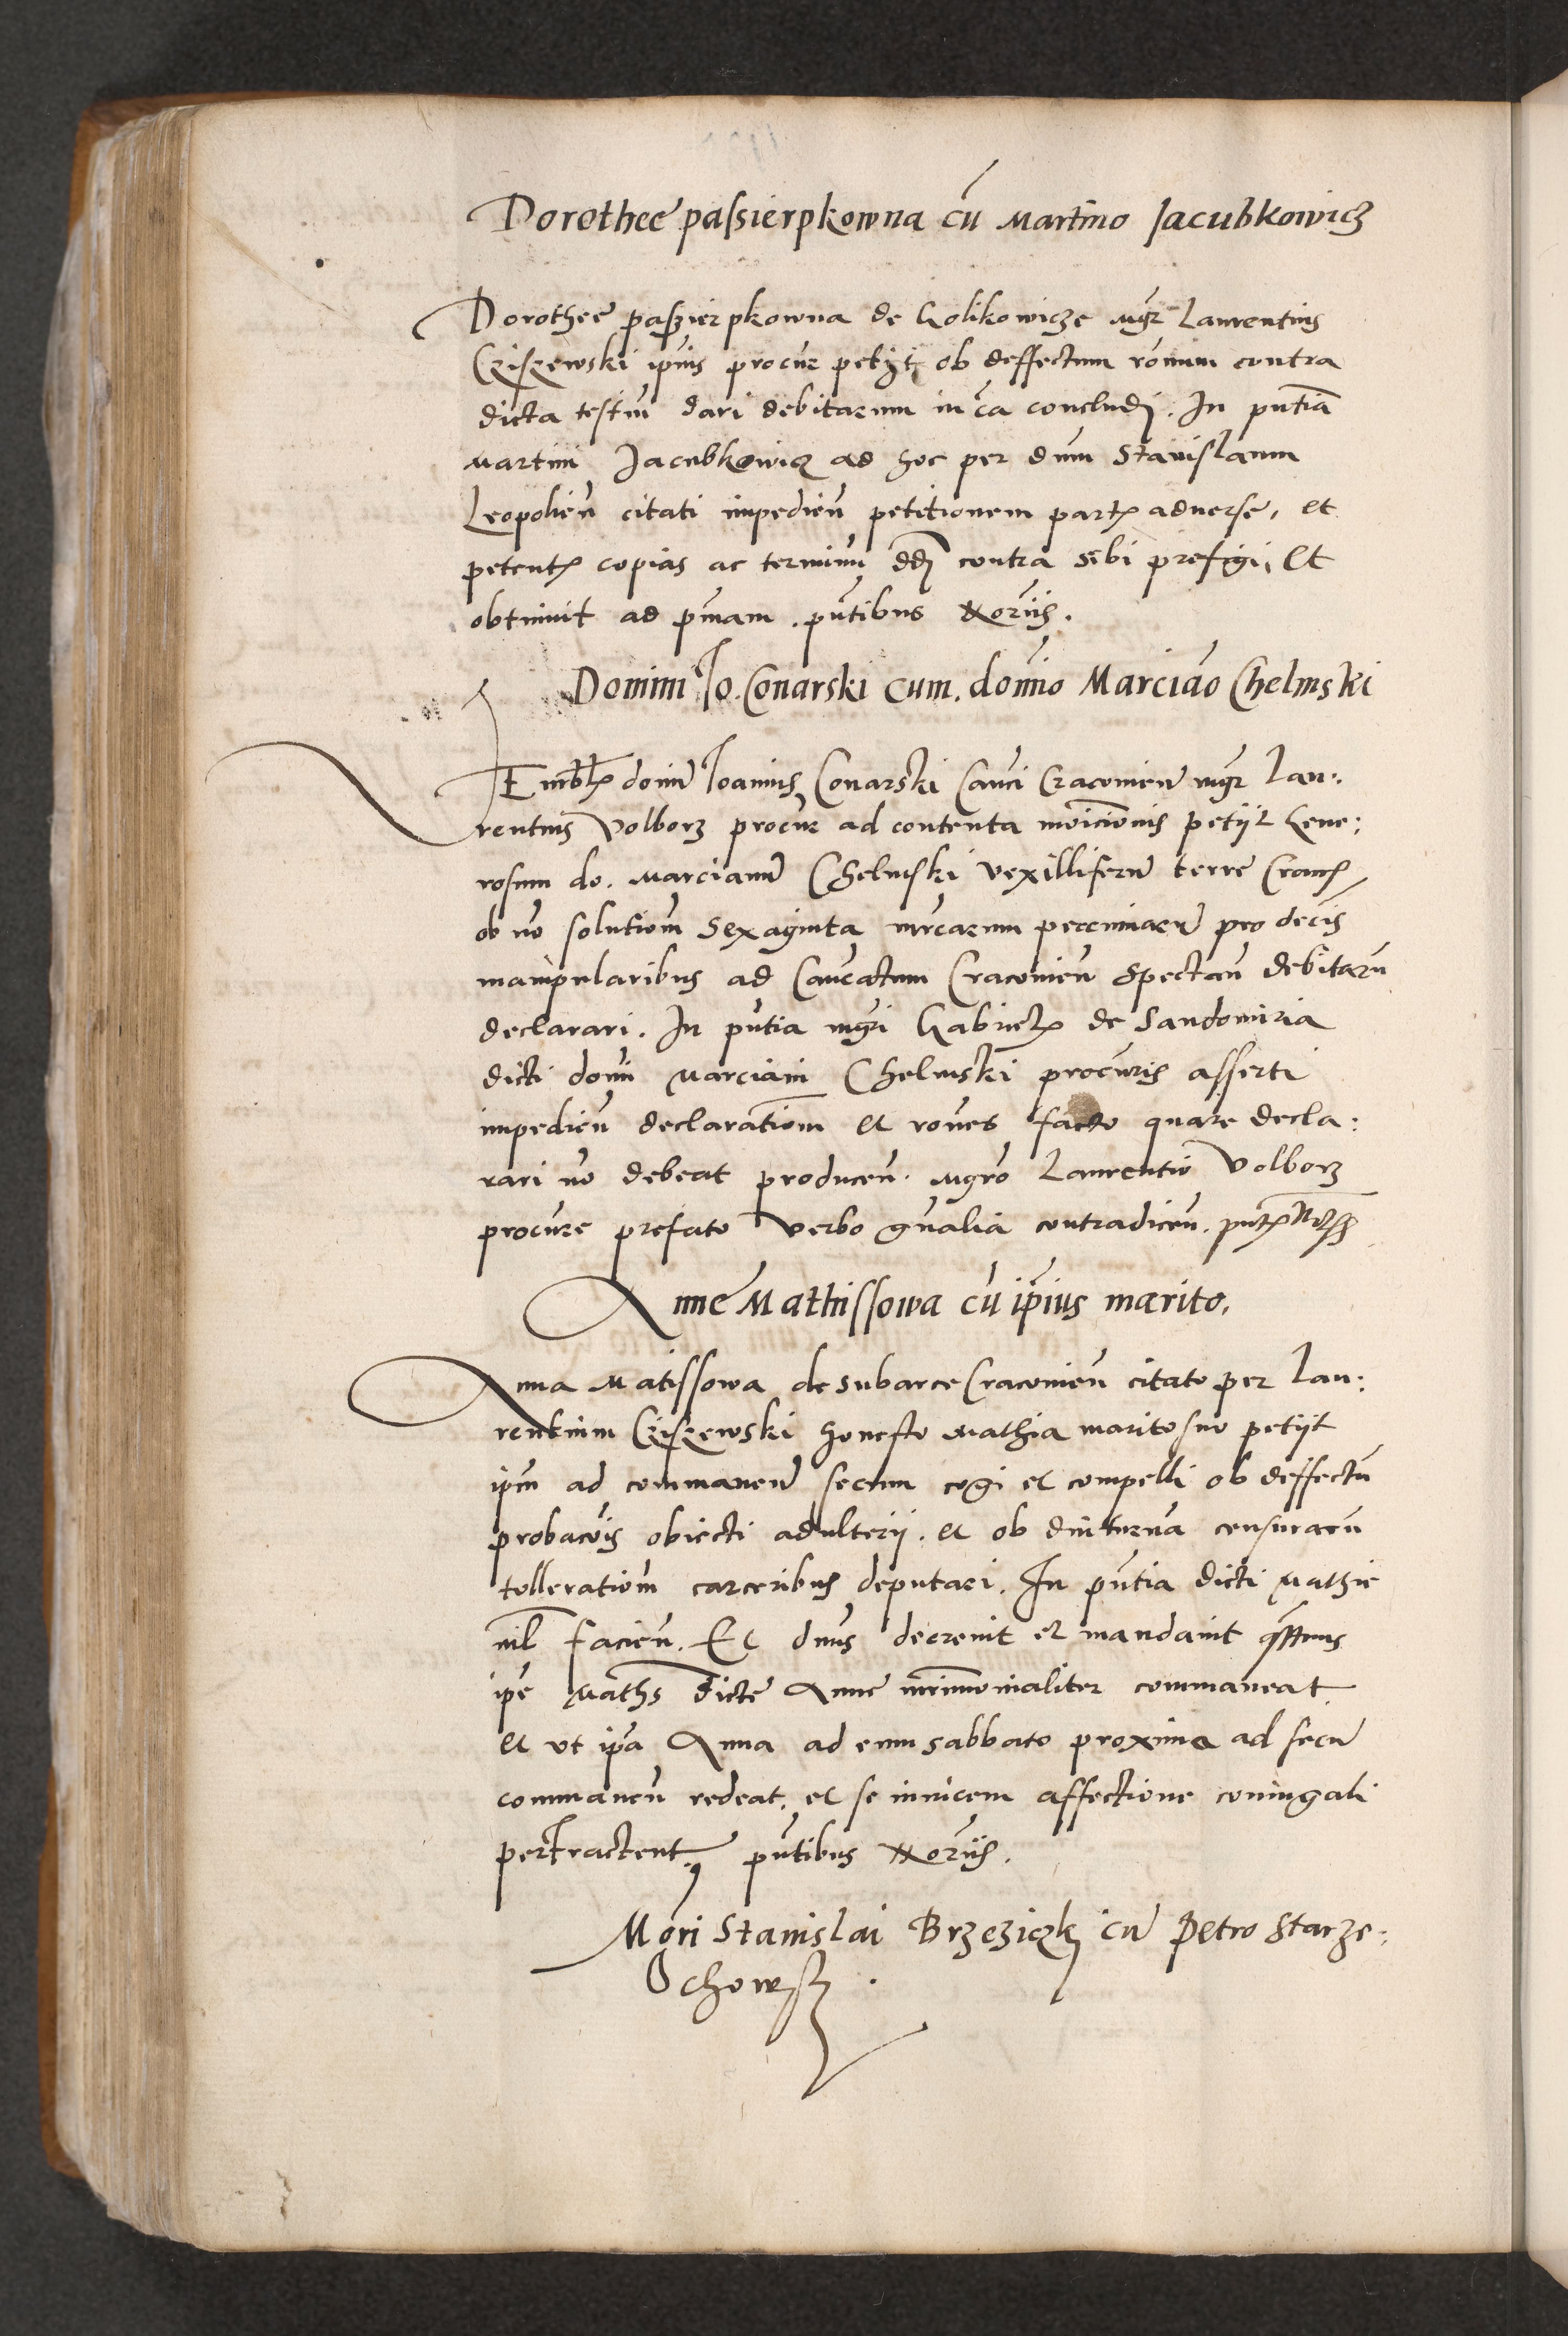 Dorothee passierpkowna cū Martino Jacubkowicz
Dorothee paszierpkowna de Golikowicze mgr̄ Laurentius
Cziszewski ip̄ius procur̄ petijt ob deffectum rōnum contra
dicta testiū dari debitarum in cā concludj. In pn̄tia
Martini Jacubkowicz ad hoc per dnm̄ Stanislaum
Leopolien̄ citati impedien̄ petitionem partꝭ aduerse, et
petentꝭ copias ac terminū dd̄j contra sibi prefigi, Et
obtinuit ad pr̄mam. pn̄tibus Notr̄iis.
Domini Jo. Conarski cum. domino Marciāo Chelmski
domin̄ Joannis Conarski Cancī Cracouien̄ mgr̄ Lau:
rentius Volborz procur̄ ad contenta monicionis petijt Gene:
rosum do. Marcianū Chelmski vexilliferū terre Cracꝭ
ob nō solutiom̄ sexaginta mrcarum pecuniarū pro decīs
manipularibus ad Cancatum Cracouien̄ spectan̄ debitarū
declarari. In pn̄tia mgr̄i Gabrielꝭ de Sandomiria
dicti domī Marciani Chelmski procur̄is asserti
impedien̄ declaratiom̄ et rōnes facto quare decla:
rari nō debeat producen̄. Mgr̄o Laurentio Volborz
procur̄e prefato verbo gn̄alia contradicen̄.
Anne Mathissowa cū ip̄ius marito.
Anna Matissowa de subarce Cracouien̄ citato per Lau:
rentium Cziszewski honesto Mathia marito suo petijt
ipm̄ ad commanen̄ secum cogi et compelli ob deffectū
probacōis obiecti adulterij. et ob diuturnā censurarū
tolleratiom̄ carceribus deputari. In pn̄tia dicti Mathie
nil̄ facien̄. Et dnūs decreuit et mandauit qt̄enus
ip̄e Maths̄ dicte Anne mr̄imonialiter commaneat
et vt ip̄a Anna ad eum sabbato proxima ad secū
commanen̄ redeat. et se inuicem affectione coniugali
pertractent. pn̄tibus Notr̄iis.
Mgr̄i Stanislai Brzeziczkj cū Petro Starze:
chowskj.